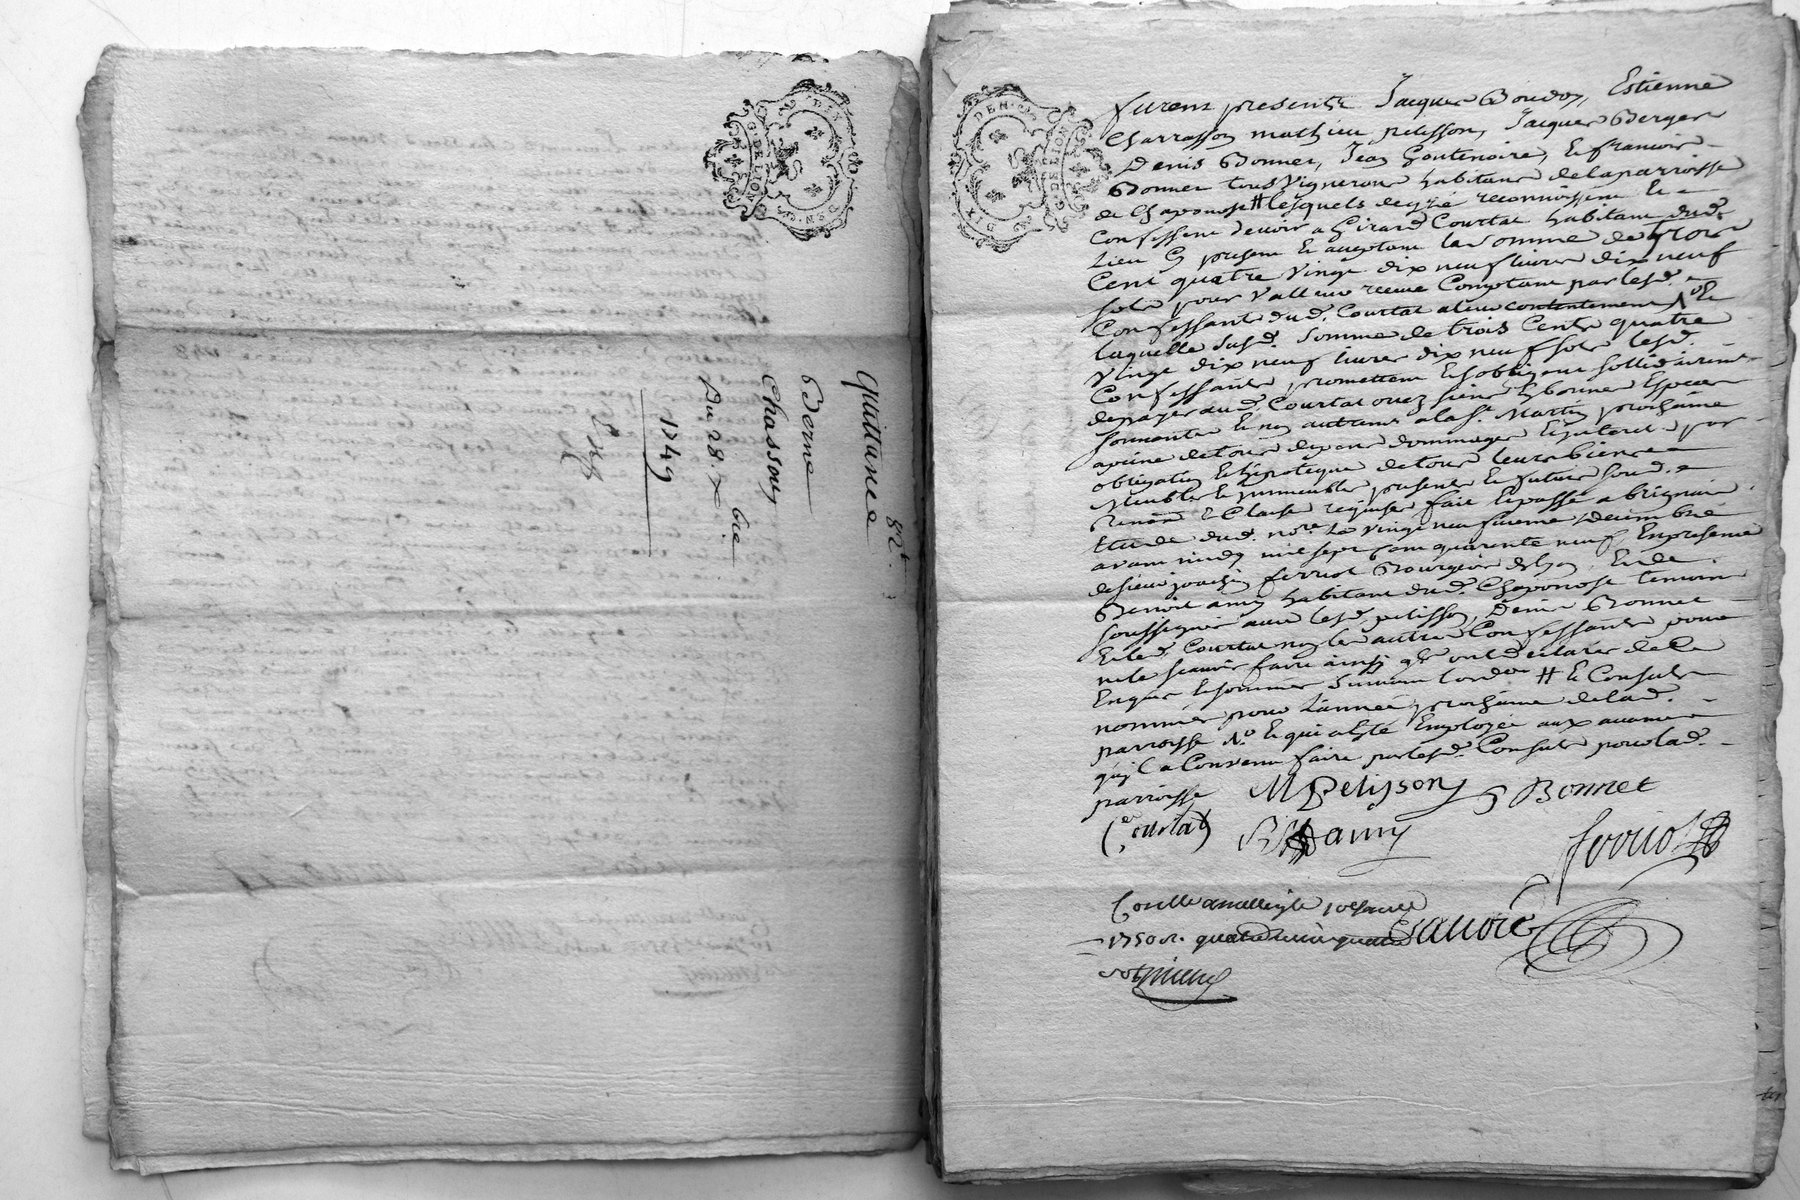 DIX DEN.rs
G. DE LION
82e.
Quittance
Berne
Chasson
Du 28. xbre
1749
DEN.rs
DIX
G. DE LION
furent presents Jacques Boudon, Estienne
Charrasson mathieu pelisson, Jacques Berger
Denis Bonnet, Jean Goutenoire, & francois
Bonnet tous vignerons habitans de la parroisse
de Chaponost # lesquels de gré reconnoissent &
confessent devoir a Girard Courtat habitant dud.
Lieu present & acceptant la somme de trois
Cent quatre vingt dix neuf livres dix neuf
sols pour valleur receue Comptant par lesd.
Confessants dud. Courtat a leur contentement
laquelle susd. somme de trois Cents quatre
vingt dix neuf livres dix neuf sols lesd.
Confessants promettent & s'obligent sollidairement
de payer aud. Courtat ou es siens En bonnes Especes
sonnantes & non autrement a la St. Martin prochaine
a peine de tous depens dommages & interets par
obligation & hipoteque de tous leurs biens
Meubles & immeubles presents & futurs soumd.
Renon. & Clause requises fait & passé a brignais
Etude dud. nore. Le vingt neufvieme decembre
avant midy mil sept cent quarante neuf En presence
de sieur joachin ferriot Bourgeois de lyon, & de
Benoit amy habitant dud. Chaponost temoins
soussignés avec lesd. pelisson, Denis Bonnet
& led. Courtat non les autres Confessants pour
ne le scavoir faire ainsy qu'ils ont declarés de ce
Enquis & sommés suivant l'ordce # & Consuls
nommés pour L'année prochaine de lad.
parroisse No. & qui a eté Employée aux avances
qu'il a Convenu faire par lesd. Consuls pour lad.
parroisse M Pelisson D Bonnet
Courtat B amy
ferriot
Conllé a
1750 r. quatre Gavoté
sols